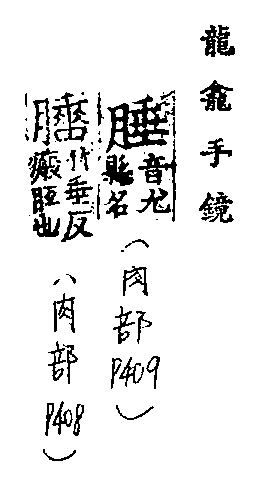 龍龕手鏡
腄
音尤
縣名
(肉部P409)
竹垂反
瘢胝也
(肉部P408)